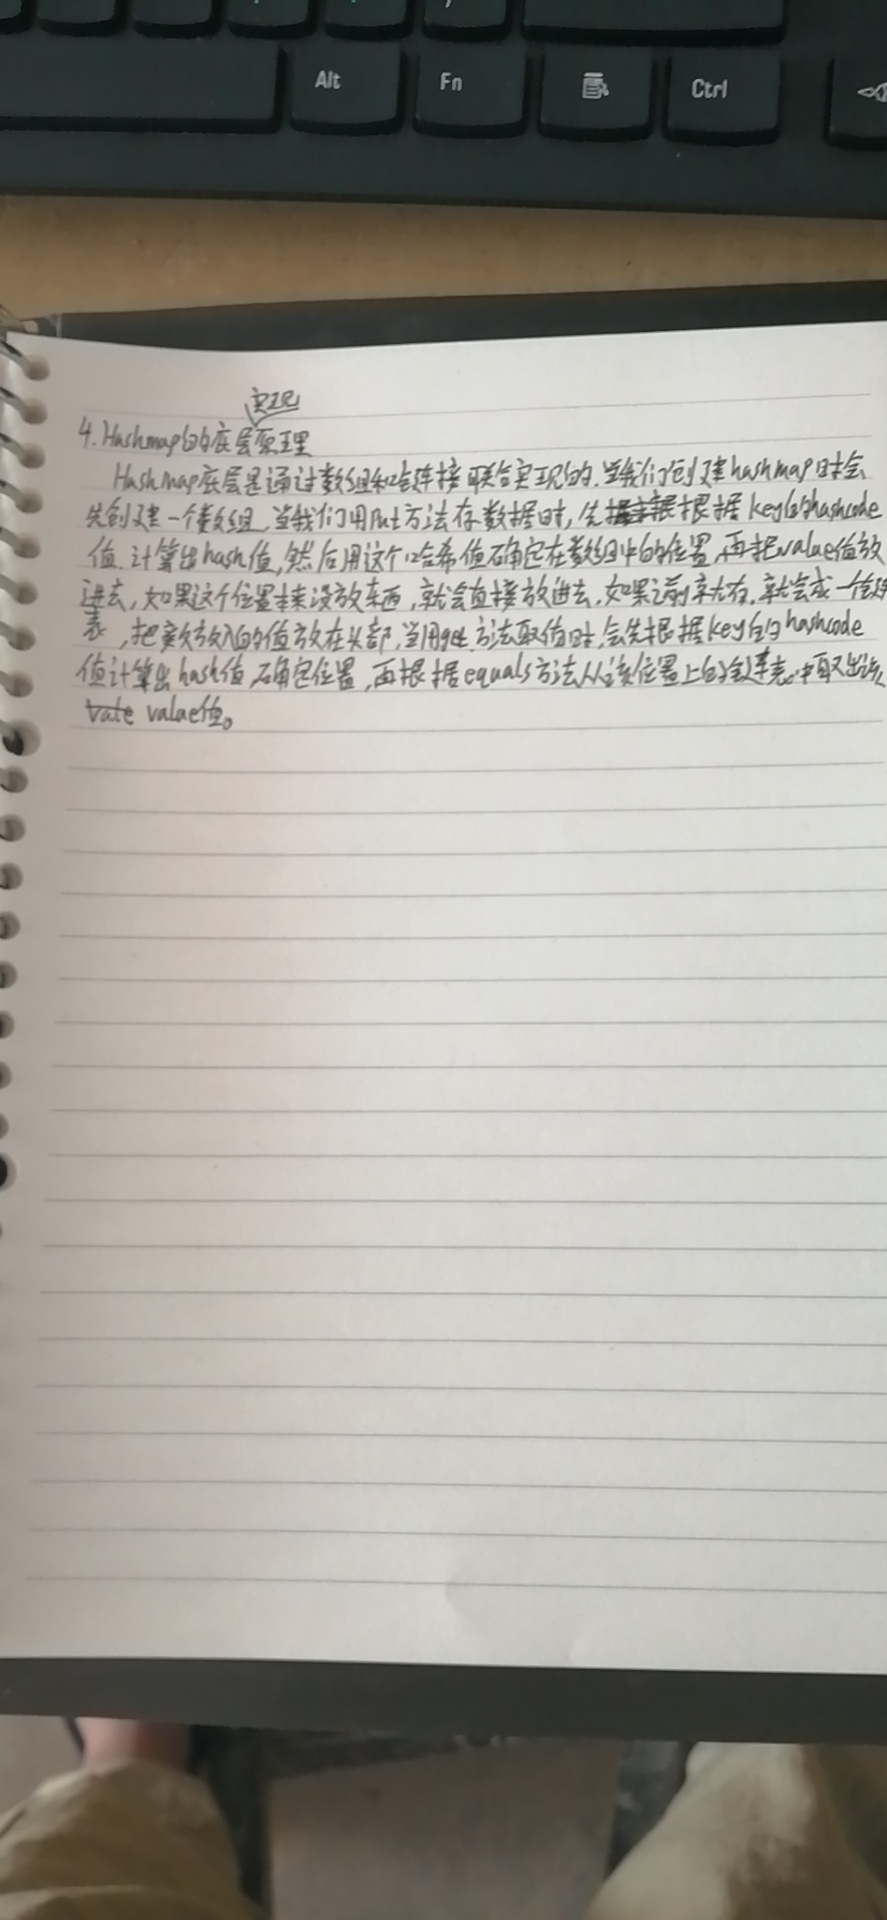 Alt Fn Ctrl
实现
4.Hashmap的底层原理
Hashmap底层是通过数组和链接联合实现的.当我们创建hashmap时会
先创建一个数组,当我们用put方法存数据时,先根据key的hashcode
值.计算出hash值,然后用这个哈希值确定在数组中的位置,再把value值放
进去,如果这个位置本来没放东西,就会直接放进去,如果之前就有,就会成一个链
表,把新放入的值放在头部,当用get方法取值时,会先根据key的hashcode
值计算出hash值,确定位置,再根据equals方法从该位置上的链表中取出该
value值。